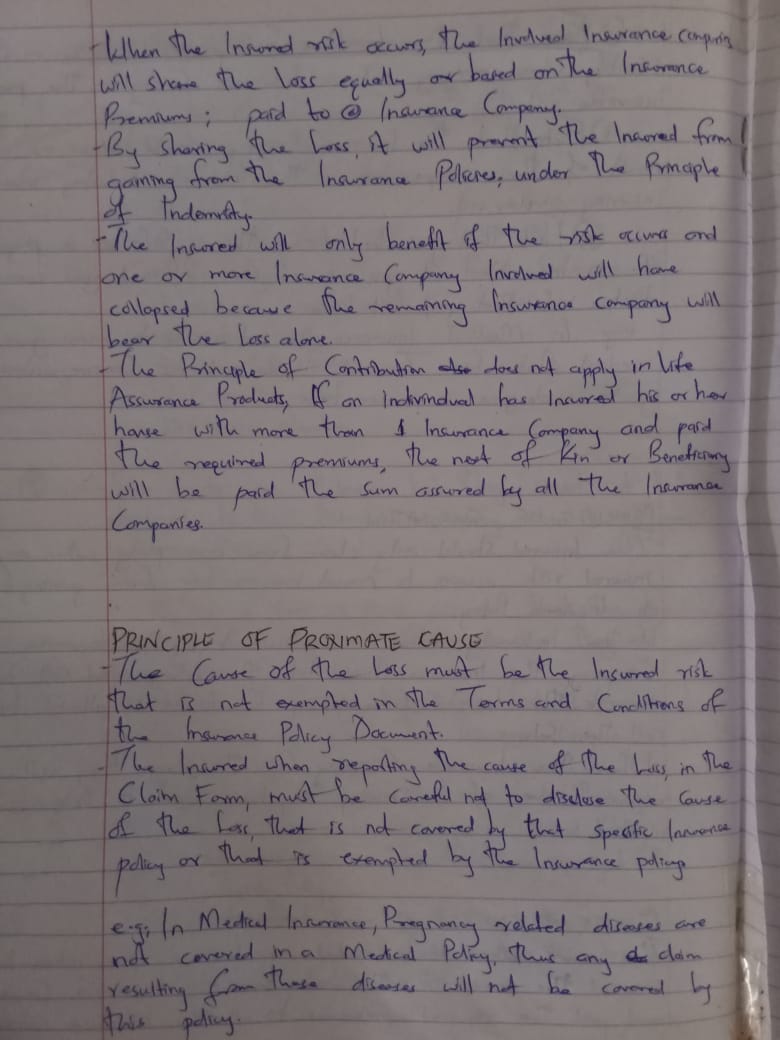 - When the Insured risk occurs, the Involved Insurance
will share the Loss equally or based on the Insurance
Premiums; paid to @ Insurance Company.
- By sharing the Loss, it will prevent the Insured from
gaining from the Insurance Policies, under the Principle
of Indemnity.
- The Insured will only benefit if the risk occurs and
one or more Insurance Company Involved will have
collapsed because the remaining Insurance Company will
bear the Loss alone.
- The Principle of Contribution does not apply in Life
Assurance Products, If an Individual has Insured his or her
house with more than 1 Insurance Company and paid
the required premiums, the next of Kin or Beneficiary
will be paid the sum assured by all the Insurance
Companies.
PRINCIPLE OF PROXIMATE CAUSE
- The Cause of the Loss must be the Insured risk
that is not exempted in the Terms and Conditions of
the Insurance Policy Document.
- The Insured when reporting the cause of the Loss, in the
Claim Form, must be careful not to disclose the Cause
of the Loss, that is not covered by that specific Insurance
policy or that is exempted by the Insurance policy
e.g; In Medical Insurance, Pregnancy related diseases are
not covered in a Medical Policy, thus any claim
resulting from those diseases will not be covered by
this policy.